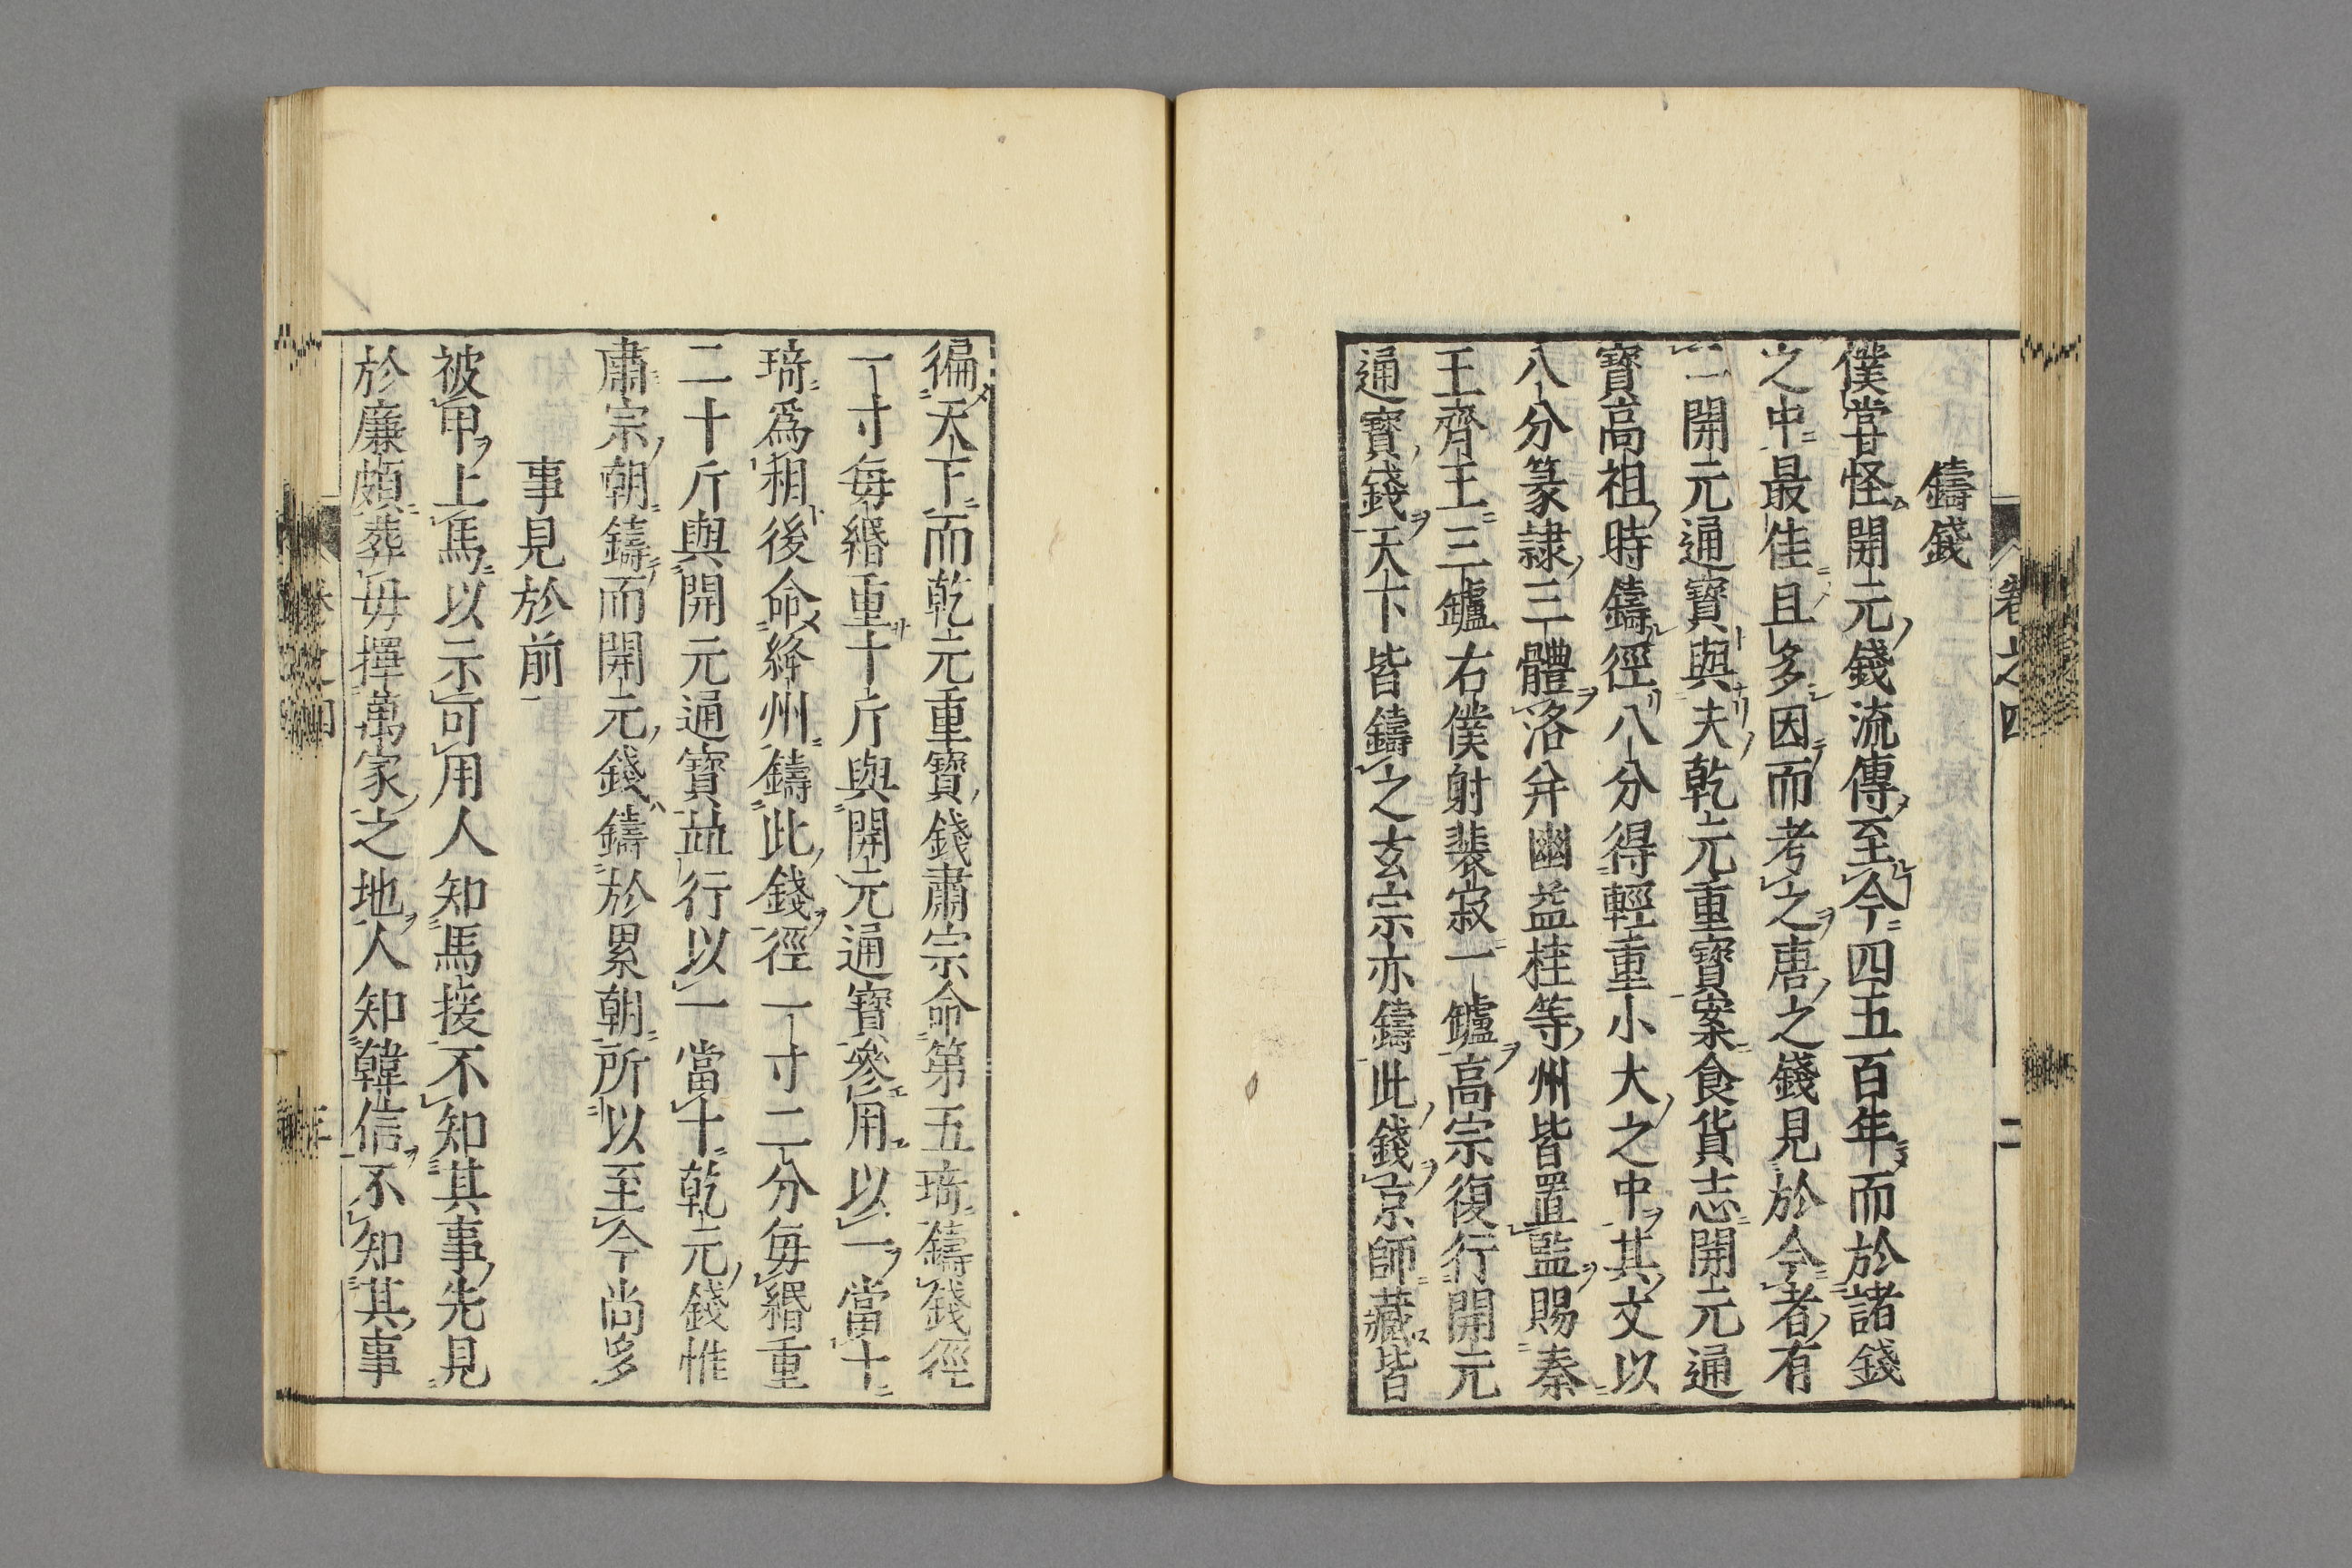 鑄錢
僕嘗怪開元錢流傳至今四五百年而於諸錢
之中最佳且多因而考之唐之錢見於今者有
二開元通寶與夫乾元重寶案食貨志開元通
寶高祖時鑄徑八分得輕重小大之中其文以
八分篆隷三體洛并幽益桂等州皆置監賜秦
王齊王三鑪右僕射裴寂一鑪高宗復行開元
通寶錢天下皆鑄之玄宗亦鑄此錢京師藏皆
卷之四
二
徧天下而乾元重寶錢肅宗命第五琦鑄錢徑
一寸每緡重十斤與開元通寶參用以一當十
琦爲相後命絳州鑄此錢徑一寸二分每緡重
二十斤與開元通寶並行以一當十乾元錢惟
肅宗朝鑄而開元錢鑄於累朝所以至今尚多
事見於前
被甲上馬以示可用人知馬援不知其事先見
於廉頗葬毋擇萬家之地人知韓信不知其事
三